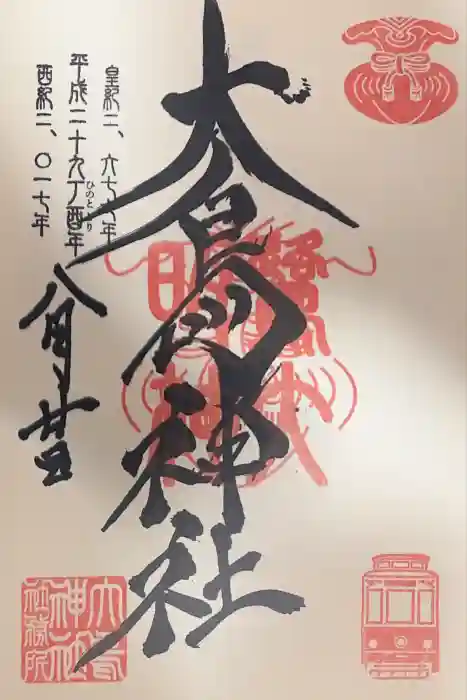 大鳥神社
皇紀二、六七七年
平成二十九丁酉年
ひのととり
西紀二、〇一七年
八月廿五
大鳥
神社
社務所